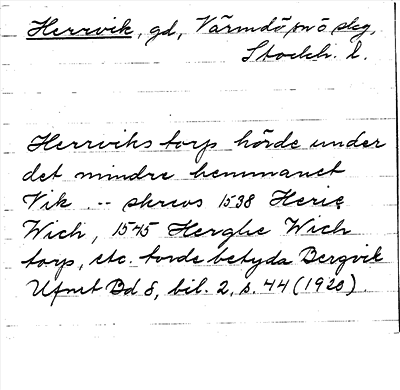 Herrvik, gd, Värmdö snö skg,
Stockh. l.
Herrviks torp hörde under
det mindre hemmanet
Vik -- skrevs 1538 Herie
Wich, 1545 Herghe Wich
torp, etc. torde betyda Bergvik
Ufmt Bd 8, bil. 2, s. 44 (1920).